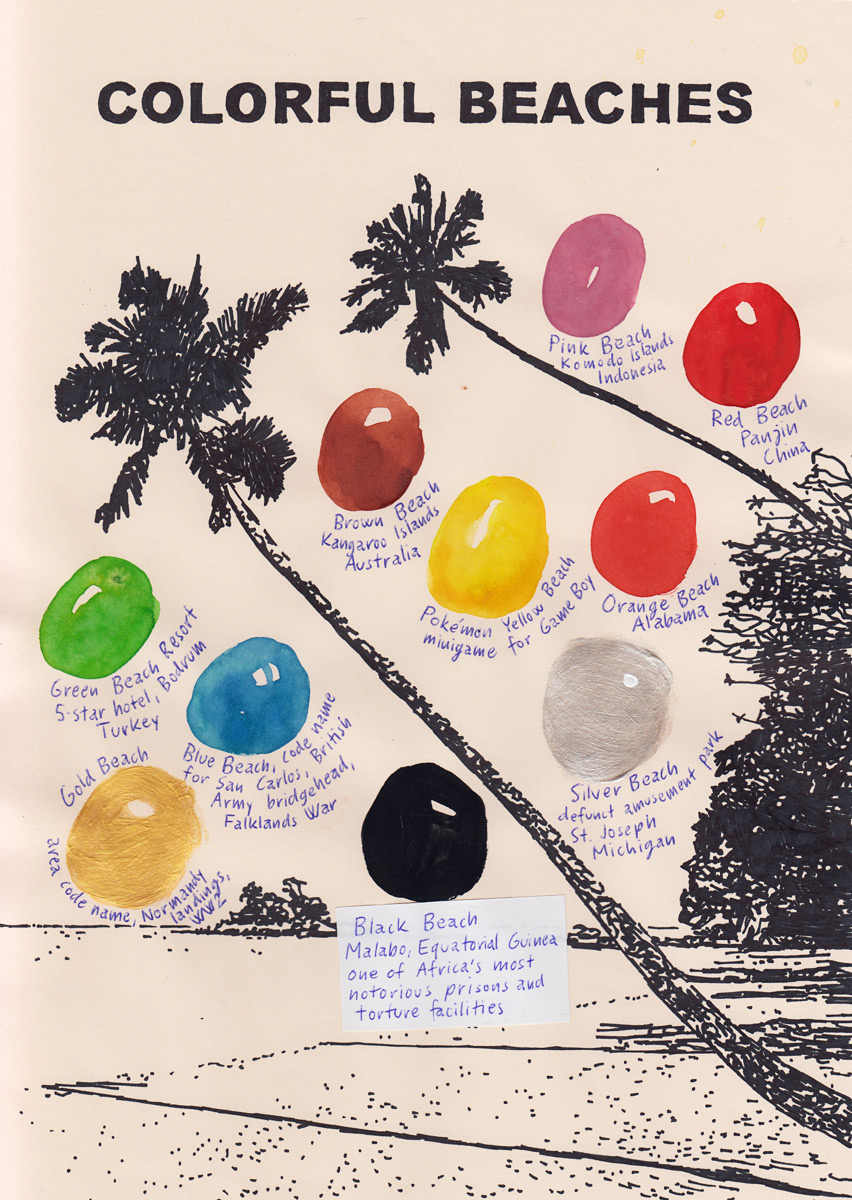 COLORFUL BEACHES
Pink Beach
Komodo Islands
Indonesia
Red Beach
Panjin
China
Brown Beach
Kangaroo Islands
Australia
Pokémon Yellow Beach
minigame for Game Boy
Orange Beach
Alabama
Green Beach Resort
5-star hotel, Bodrum
Turkey
Blue Beach, code name
for San Carlos, British
Army bridgehead,
Falklands War
Silver Beach
defunct amusement park
St. Joseph
Michigan
Gold Beach
area code name, Normandy
landings,
WW2
Black Beach
Malabo, Equatorial Guinea
one of Africa's most
notorious prisons and
torture facilities